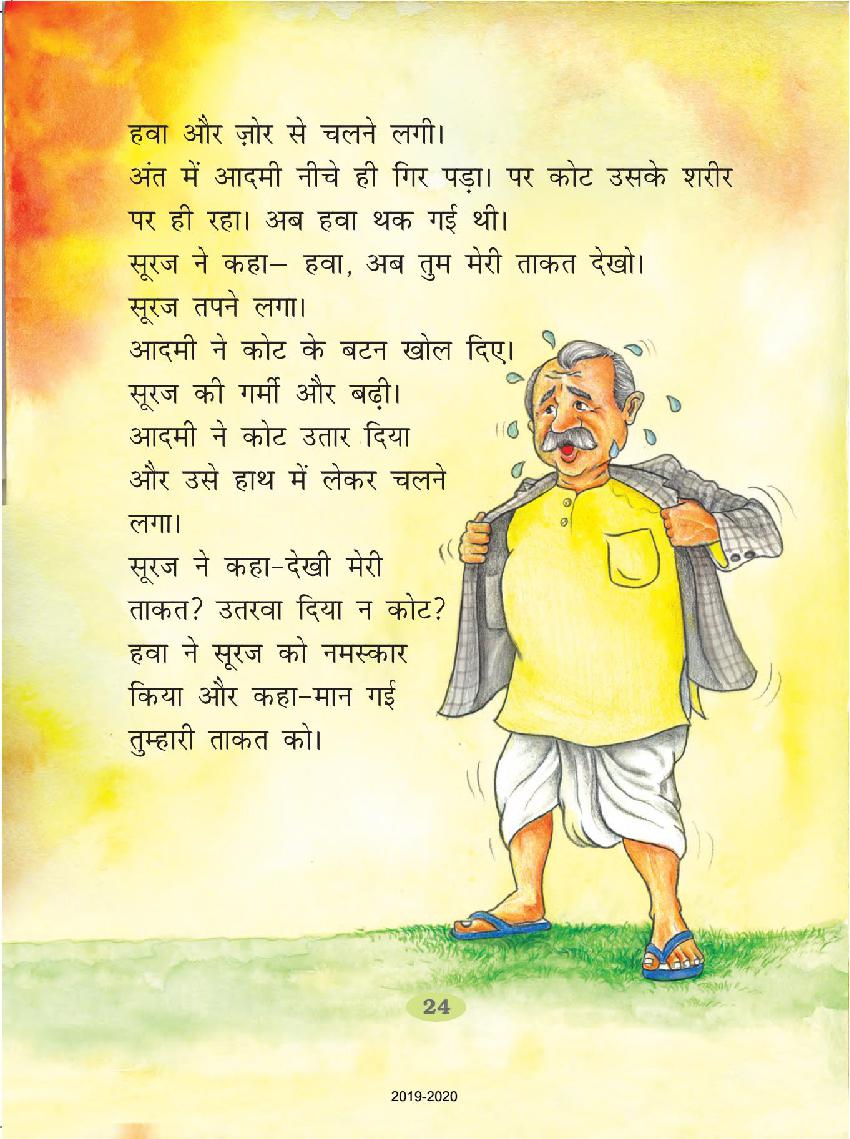 हवा और ज़ोर से चलने लगी।
अंत में आदमी नीचे ही गिर पड़ा। पर कोट उसके शरीर
पर ही रहा। अब हवा थक गई थी।
सूरज ने कहा– हवा, अब तुम मेरी ताकत देखो।
सूरज तपने लगा।
आदमी ने कोट के बटन खोल दिए।
सूरज की गर्मी और बढ़ी।
आदमी ने कोट उतार दिया
और उसे हाथ में लेकर चलने
लगा।
सूरज ने कहा-देखी मेरी
ताकत? उतरवा दिया न कोट?
हवा ने सूरज को नमस्कार
किया और कहा-मान गई
तुम्हारी ताकत को।
24
2019-2020